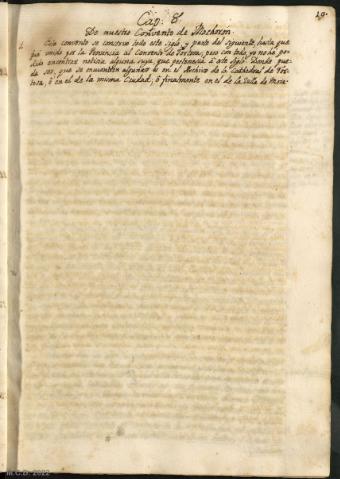 19.
Cap. 8.
De nuestro Convento de Machiron.
1. Este convento se conservò todo este siglo, y parte del siguiente, hasta que
fue unido por la Provincia al Convento de Tortosa; pero con todo, yo no he po-
dido encontrar noticia alguna suya, que pertenecia à este siglo. Donde pue-
de ser, que se encuentren algunas es en el Archivo de la Cathedral de Tor-
tosa, ò en el de la misma Ciudad, ò finalmente en el de la Villa de
M.C.D. 2022